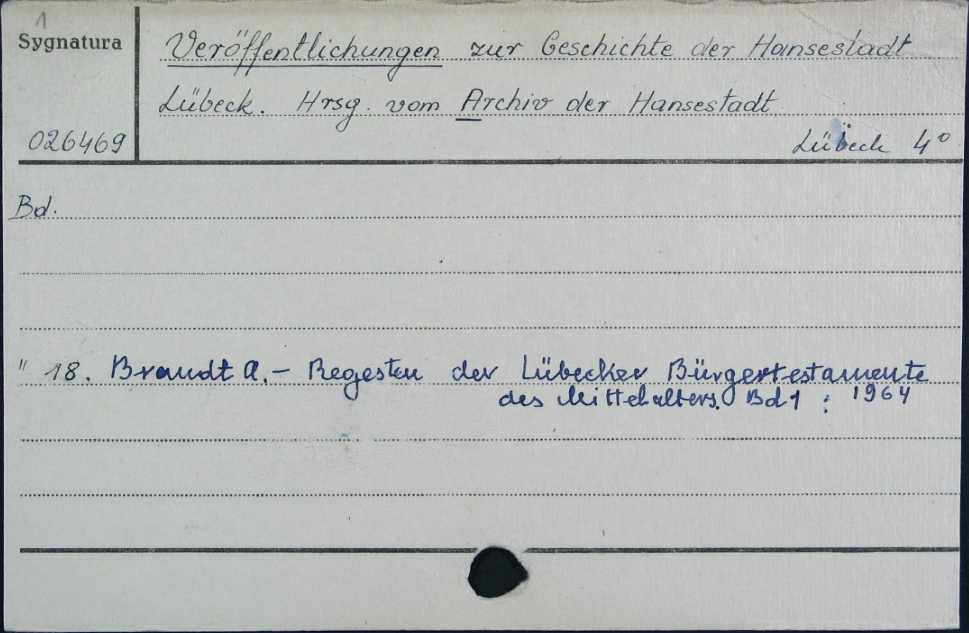 1
Sygnatura
Veröffentlichungen zur Geschichte der Hansestadt
Lübeck. Hrsg. vom Archiv der Hansestadt
026469
Lübeck 4°
Bd.
" 18. Brandt A. - Regesten der Lübecker Bürgertestamente
des Mittelalters. Bd 1 : 1964